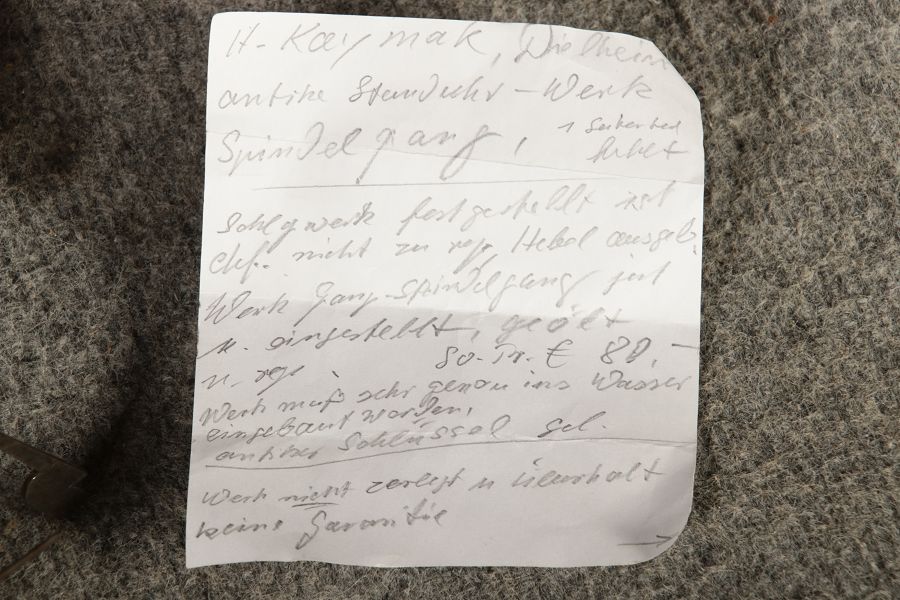 H. Kaymak, Dielheim
antike Standuhr-Werk
Spindelgang, 1
fehlt
Schlagwerk festgestellt ist
def. nicht zu rep. Hebel ausgeb.
Werk Gang-Spindelgang just
u. eingestellt, geölt
u. rep. € 80,-
Werk muß sehr genau ins Wasser
eingebaut werden,
antiker Schlüssel gel.
Werk nicht zerlegt u Überholt
keine Garantie